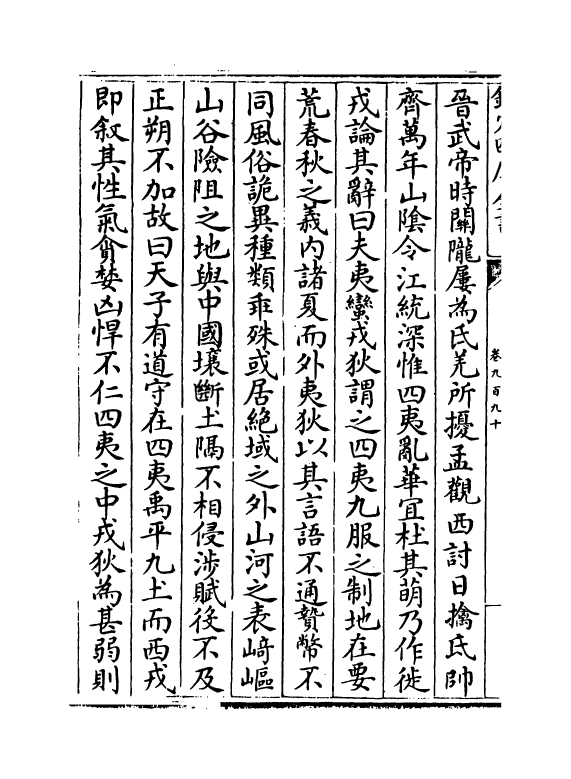 卷九百九十
晉武帝時關隴屢為氐羌所擾孟觀西討日擒氐帥
齊萬年山陰令江統深惟四夷亂華宜杜其萌乃作徙
戎論其辭曰夫夷蠻戎狄謂之四夷九服之制地在要
荒春秋之義內諸夏而外夷狄以其言語不通贄幣不
同風俗詭異種類乖殊或居絶域之外山河之表崎嶇
山谷險阻之地與中國壤斷土隔不相侵涉賦役不及
正朔不加故曰天子有道守在四夷禹平九土而西戎
即敘其性氣貪婪凶悍不仁四夷之中戎狄為甚弱則